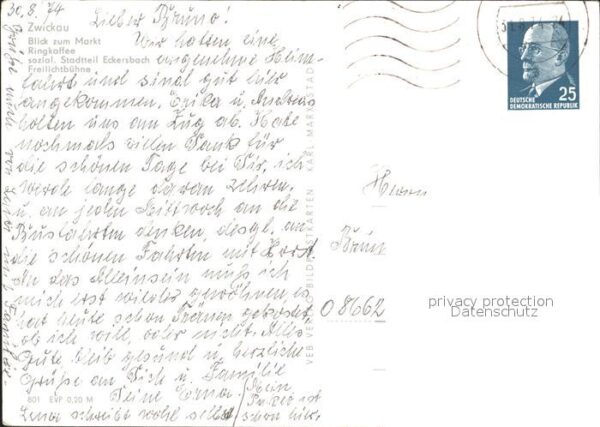 30.8.74
Lieber Bruno!
Zwickau
Blick zum Markt
Ringkaffee
sozial. Stadtteil Eckersbach
Freilichtbühne
Wir hatten eine
angenehme Heim-
fahrt und sind gut hier
angekommen. Erika u. Andreas
holten uns am Zug ab. Habe
nochmals vielen Dank für
die schönen Tage bei Dir, ich
werde lange daran zehren,
u. an jeden Mittwoch an die
Busfahrten denken, desgl. an
die schönen Fahrten mit Horst.
An das Alleinsein muß ich
mich erst wieder gewöhnen, es
hat heute schon Tränen gekostet,
ob ich will, oder nicht. Alles
Gute bleib gesund u. herzliche
Grüße an Dich u. Familie
Deine Erna.
Lena schreibt wohl selbst
Mein
ist
schon hier.
Grüße auch von
801 EVP 0,20 M
VEB BILD POSTKARTEN KARL-MARX-STADT
25
DEUTSCHE
DEMOKRATISCHE REPUBLIK
Herrn
Brun
O 8662
privacy protection
Datenschutz